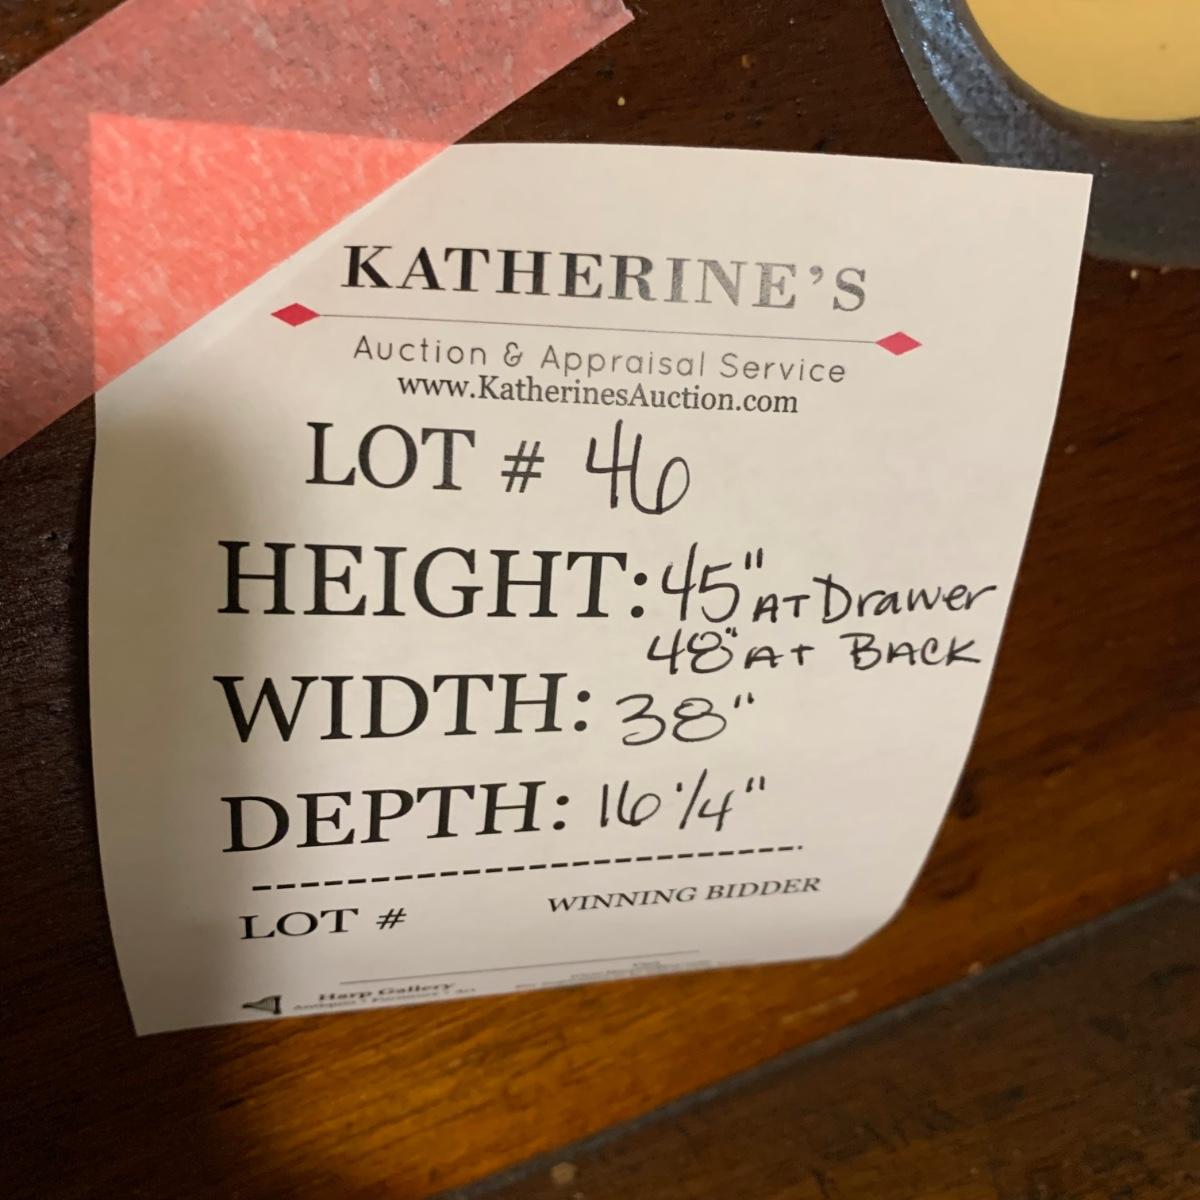 KATHERINE'S
Auction & Appraisal Service
www.KatherinesAuction.com
LOT # 46
HEIGHT: 45" AT Drawer
48" AT BACK
WIDTH: 38"
DEPTH: 16 1/4"
LOT # WINNING BIDDER
Harp Gallery